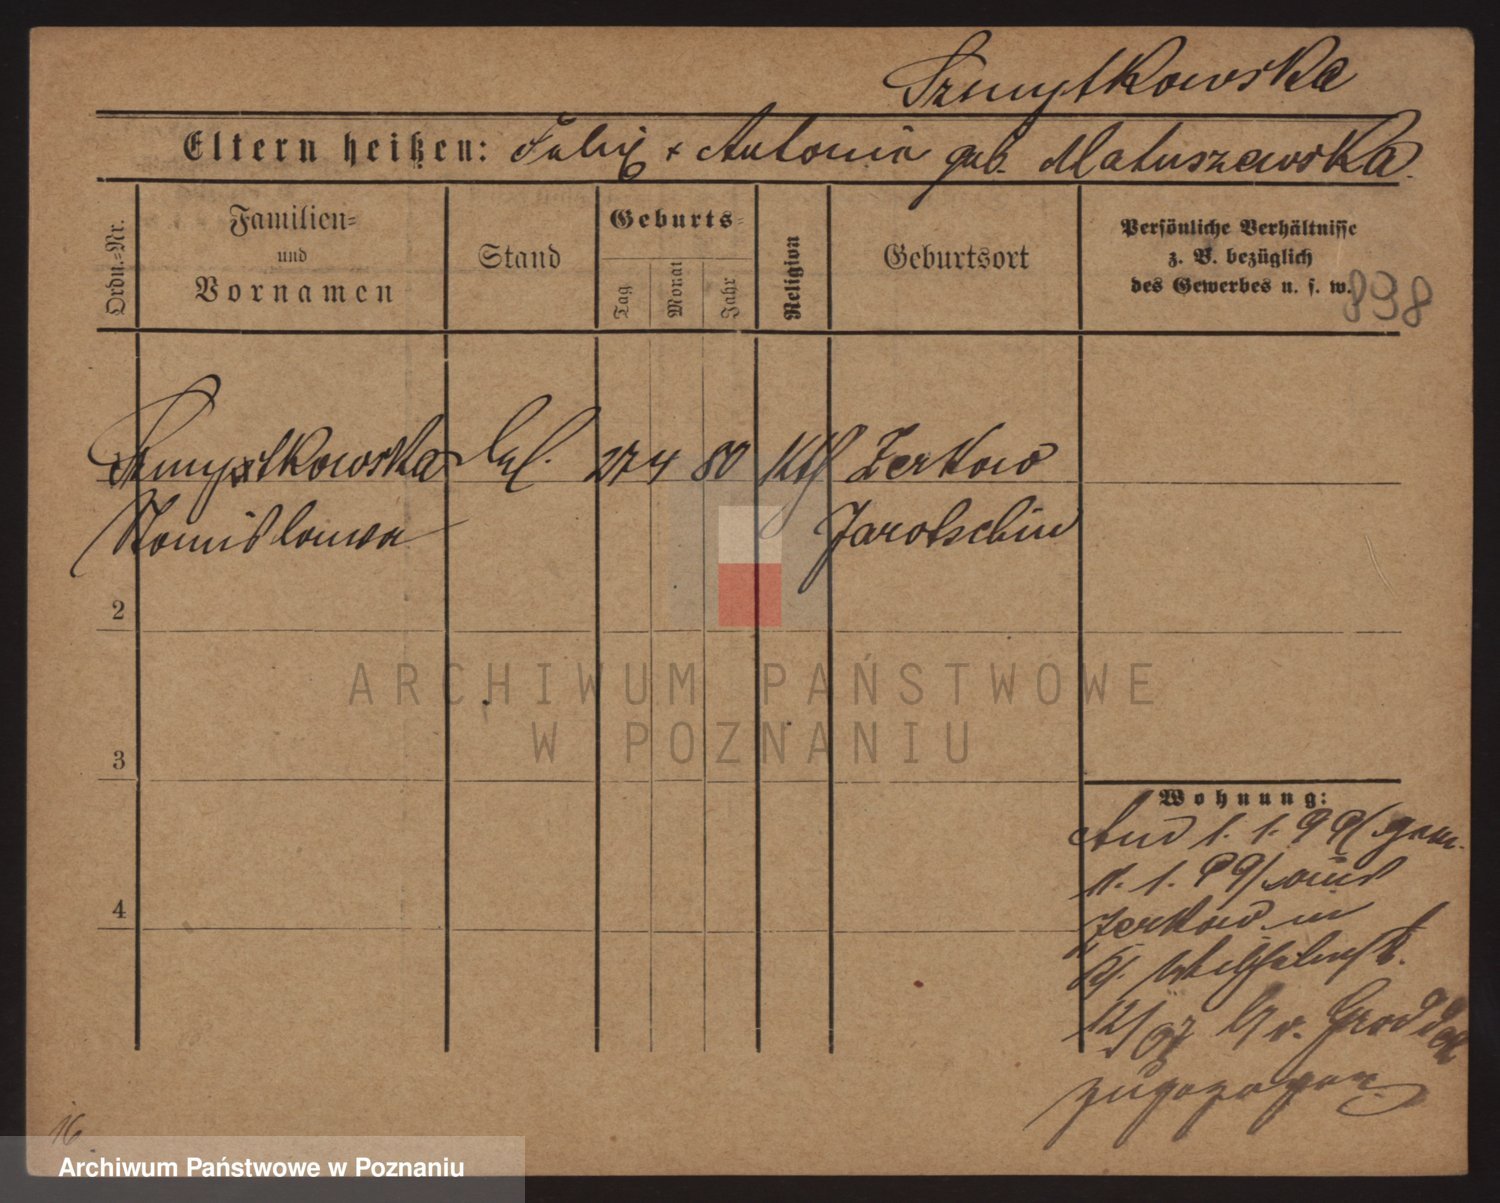 Szmytkowska
Eltern heißen: Felix + Antonie geb. Matuszewska.
Ordn.-Nr.
Familien-
und
Vornamen
Stand
Geburts-
Tag
Monat
Jahr
Religion
Geburtsort
Persönliche Verhältnisse
z. B. bezüglich
des Gewerbes u. s. w.
898
Szmytkowska led. 27 4 80 Kth Zerkow
Stanislawa Jarotschin
2
3
4
ARCHIWUM PAŃSTWOWE
W POZNANIU
Wohnung:
1. 1. 99
1. 99/ aus
Zerkow in
12/
v. Groddeck
zugezogen
16
Archiwum Państwowe w Poznaniu